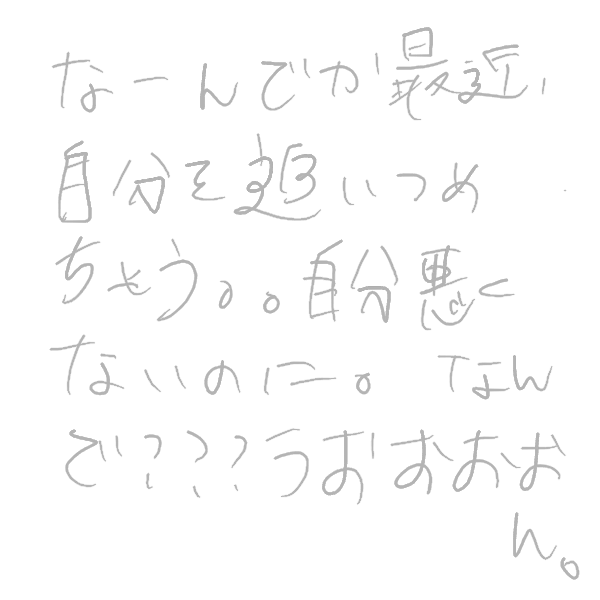 なーんでか最近、
自分を追いつめ
ちゃう。。自分悪く
ないのに。 なん
で???うおおおお
ん。